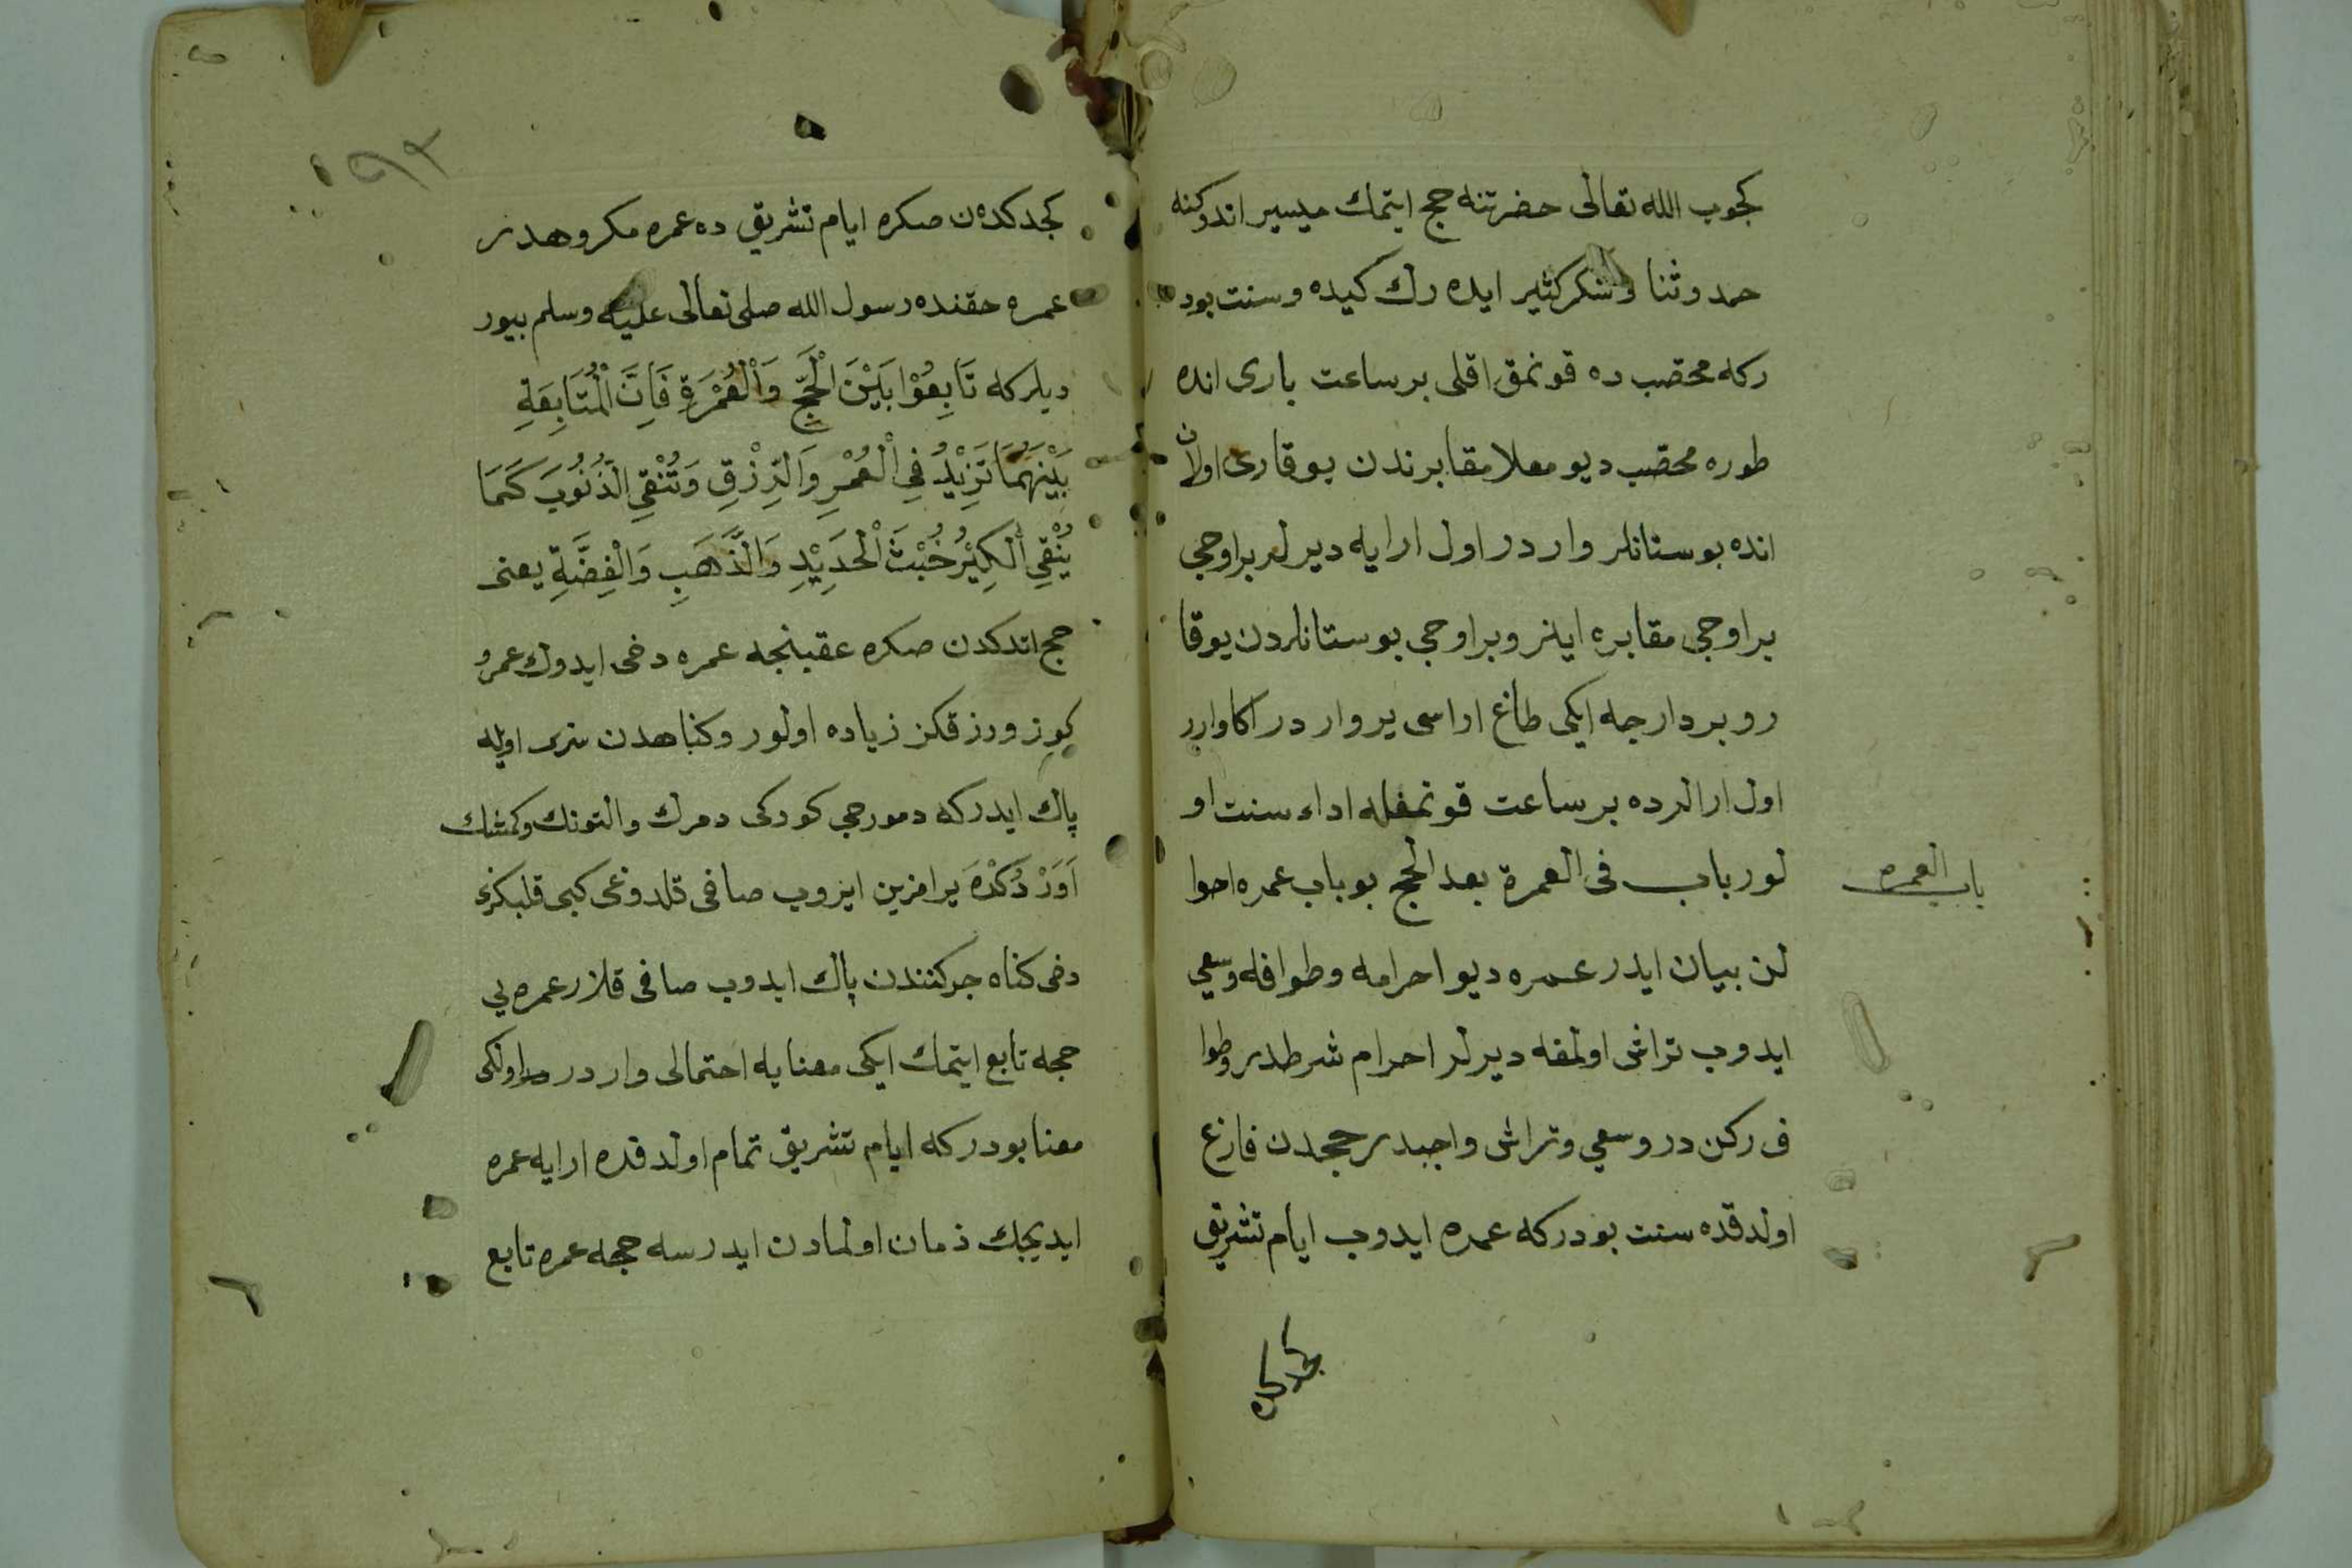 كجوب الله تعالى حضرتنه حج ايتمك ميسير اندوكنه
حمد وثنا و شكر كثير ايده رك كيده و سنت بود
ركه محصب ده قونمق اقلى بر ساعت بارى انده
طوره محصب ديو معلا مقابرندن يوقارى اولان
انده بوستانلر وار در اول ارايه ديرلر براوجى
براوجى مقابره اينر وبراوجى بوستانلردن يوقا
رو بردار جه ايكى طاغ اراسى ير وار در اكا وارر
اول ارالرده بر ساعت قونمغله اداء سنت او
لور باب فى العمرة بعد الحج بو باب عمره احوا
باب العمره
لن بيان ايدر عمره ديو احرامه وطوافله وسعي
ايدوب تراش اولمغه ديرلر احرام شرطدر وطوا
ف ركن در وسعي وتراش واجبدر حجدن فارغ
اولدقده سنت بودركه عمره ايدوب ايام تشريق
١٩٣
كجدكده ن صكره ايام تشريق ده عمره مكروهدر
عمره حقنده رسول الله صلى تعالى عليه وسلم بيور
ديلركه تَابِعُوْا بَيْنَ الْحَجِّ وَالْعُمْرَةِ فَاِنَّ الْمُتَابِعَةِ
بَيْنَهُمَا تَزِيْدُ فِى الْعُمْرِ وَالرِّزْقِ وَتُنْقِى الذُّنُوُبَ كَمَا
يُنْقِى الْكِيْرُ خُبْثَ الْحَدِيْدِ وَالذَّهَبِ وَالْفِضَّةِ يعنى
حج اتدكدن صكره عقبنجه عمره دخى ايدوك عمرو
كوز ورزقكز زياده اولور وكناهدن سزى اويله
پاك ايدركه دمورجى كودكى دمرك والتونك وكمشك
يرامزين ايزوب صافى قلدوغى كبى قلبكزى
دخى كناه جركنندن پاك ايدوب صافى قلار عمره يى
حجه تابع ايتمك ايكى معنايه احتمالى وار در اولكى
معنا بودركه ايام تشريق تمام اولدقده ارايه عمره
ايديجك زمان اولمادن ايدرسه حجه عمره تابع